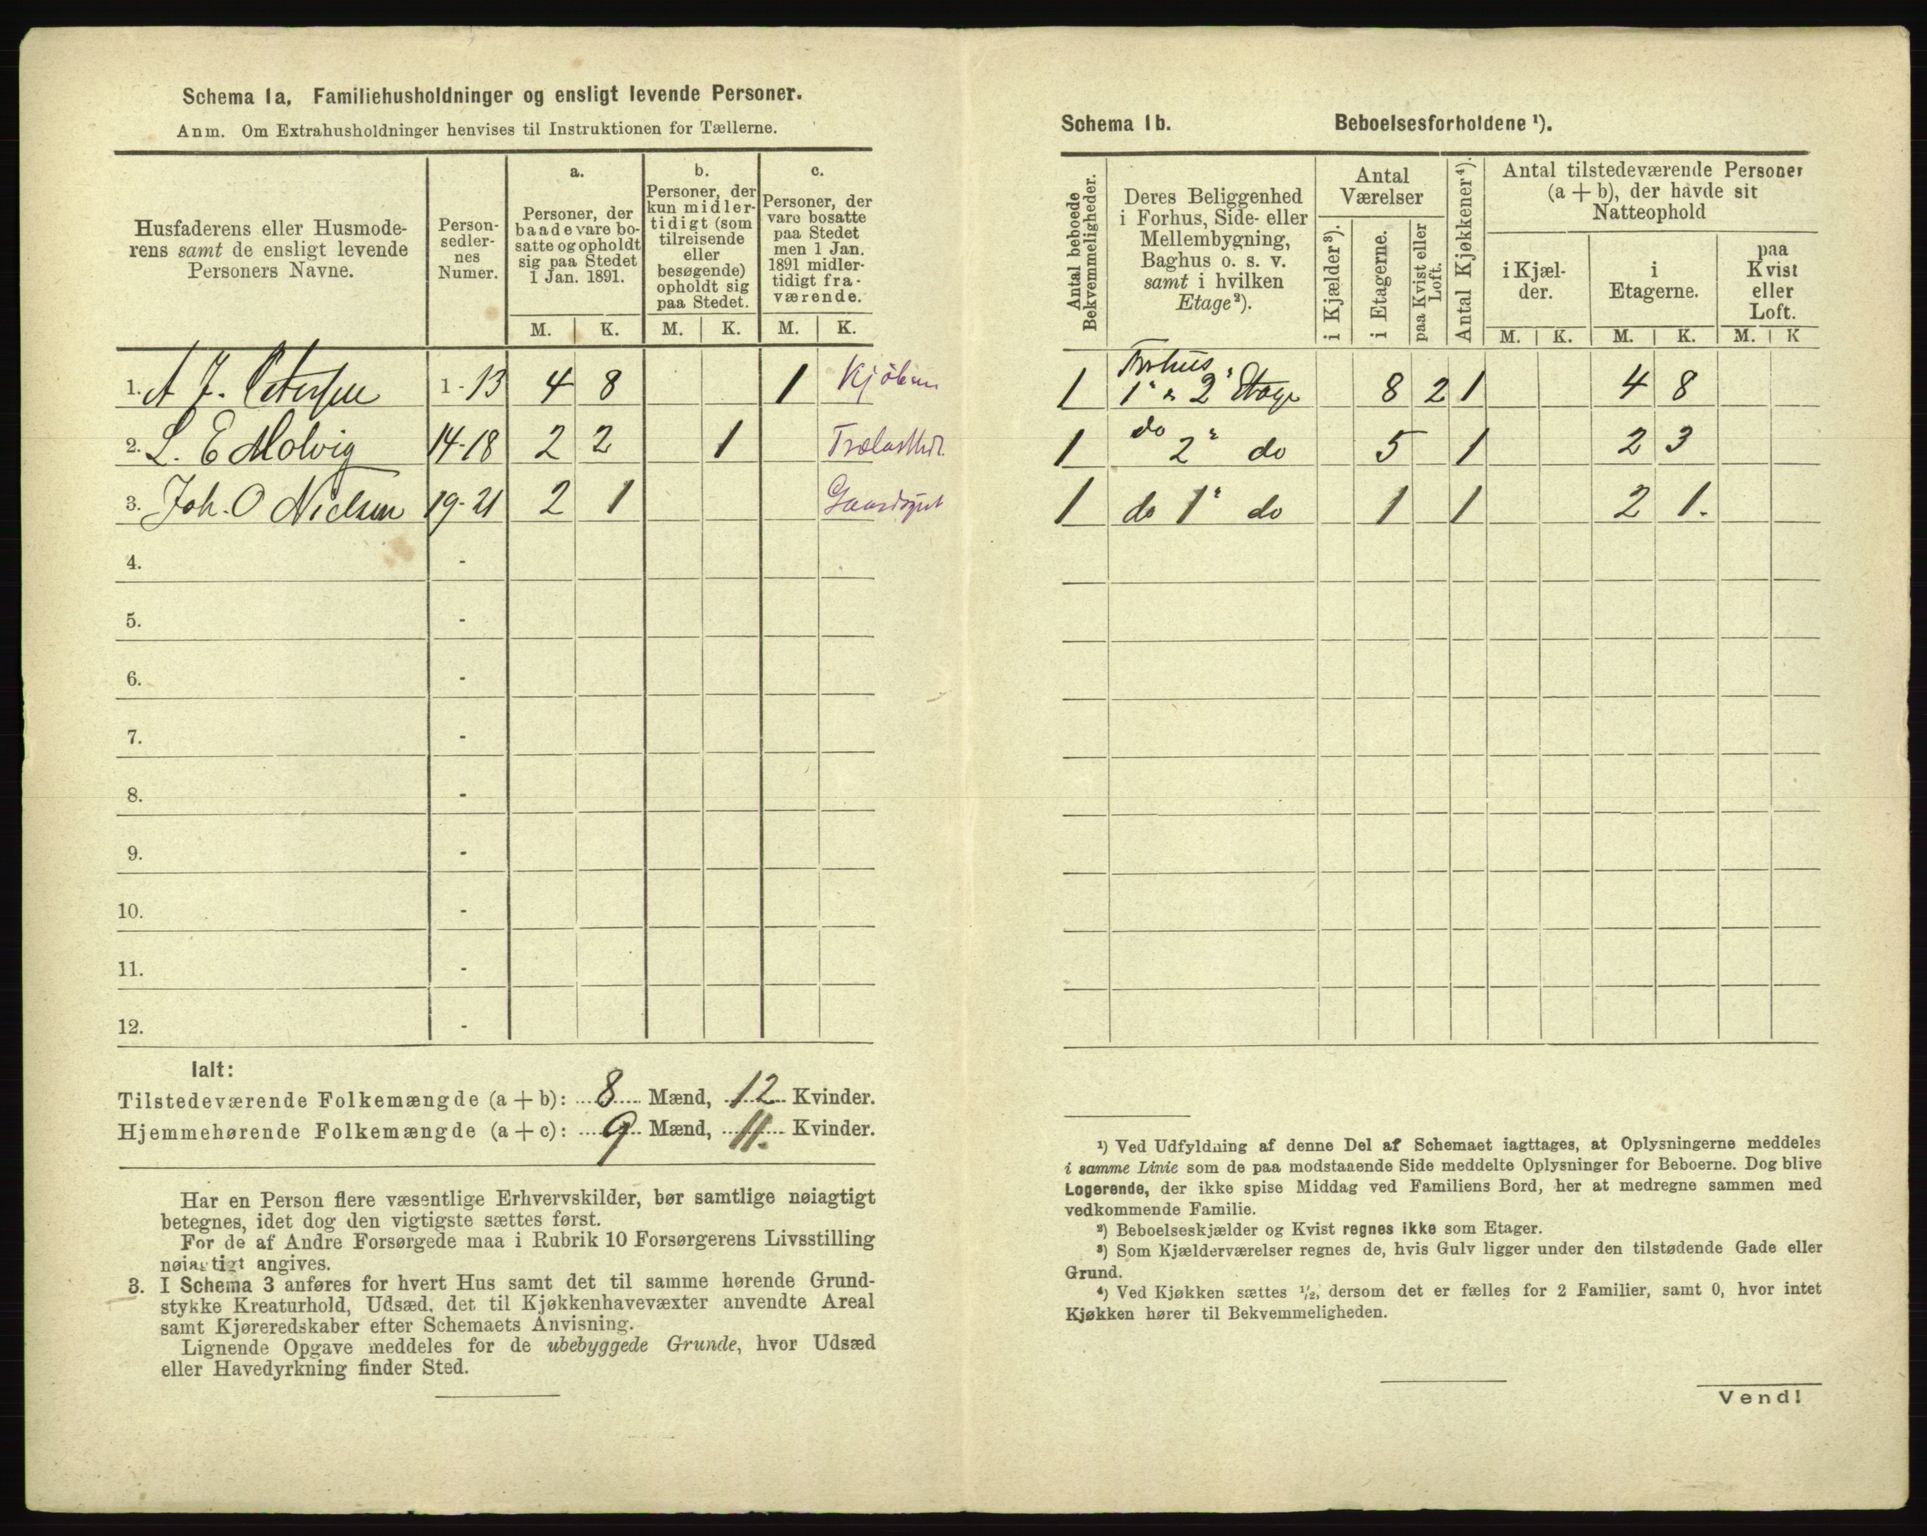 Schema 1a. Familiehusholdninger og ensligt levende Personer.
Anm. Om Extrahusholdninger henvises til Instruktionen for Tællerne.
Husfaderens eller Husmode-
rens samt de ensligt levende
Personers Navne.
Person-
sedler-
nes
Numer.
a.
Personer, der
baade vare bo-
satte og opholdt
sig paa Stedet
1 Jan. 1891.
b.
Personer, der
kun midler-
tidigt (som
tilreisende
eller
besøgende)
opholdt sig
paa Stedet.
c.
Personer, der
vare bosatte
paa Stedet
men 1 Jan.
1891 midler-
tidigt fra-
værende.
M. K. M. K. M. K.
1. A J. Petersen 1-13 4 8 1 Kjøbm
2. L. E Molvig 14-18 2 2 1 Trælasthdl.
3. Joh. O Nielsen 19-21 2 1
4. -
5. -
6. -
7. -
8. -
9. -
10. -
11. -
12. -
Ialt:
Tilstedeværende Folkemængde (a + b): 8 Mænd, 12 Kvinder.
Hjemmehørende Folkemængde (a + c): 9 Mænd, 11. Kvinder.
Har en Person flere væsentlige Erhvervskilder, bør samtlige nøiagtigt
betegnes, idet dog den vigtigste sættes først.
For de af Andre Forsørgede maa i Rubrik 10 Forsørgerens Livsstilling
nøiagtigt angives.
3. I Schema 3 anføres for hvert Hus samt det til samme hørende Grund-
stykke Kreaturhold, Udsæd, det til Kjøkkenhavevæxter anvendte Areal
samt Kjøreredskaber efter Schemaets Anvisning.
Lignende Opgave meddeles for de ubebyggede Grunde, hvor Udsæd
eller Havedyrkning finder Sted.
Schema 1b. Beboelsesforholdene ¹).
Antal beboede
Bekvemmeligheder.
Deres Beliggenhed
i Forhus, Side- eller
Mellembygning,
Baghus o. s. v.
samt i hvilken
Etage²).
Antal
Værelser
i Kjælder³).
i Etagerne.
paa Kvist eller
Loft.
Antal Kjøkkener⁴).
Antal tilstedeværende Personer
(a + b), der havde sit
Natteophold
i Kjæl-
der.
i
Etagerne.
paa
Kvist
eller
Loft.
M. K. M. K. M. K
Forhus
1 1' " 2' Etage 8 2 1 4 8
1 do 2' do 5 1 2 3
1 do 1' do 1 1 2 1.
¹) Ved Udfyldning af denne Del af Schemaet iagttages, at Oplysningerne meddeles
i samme Linie som de paa modstaaende Side meddelte Oplysninger for Beboerne. Dog blive
Logerende, der ikke spise Middag ved Familiens Bord, her at medregne sammen med
vedkommende Familie.
²) Beboelseskjælder og Kvist regnes ikke som Etager.
³) Som Kjælderværelser regnes de, hvis Gulv ligger under den tilstødende Gade eller
Grund.
⁴) Ved Kjøkken sættes ½, dersom det er fælles for 2 Familier, samt 0, hvor intet
Kjøkken hører til Bekvemmeligheden.
Vend!